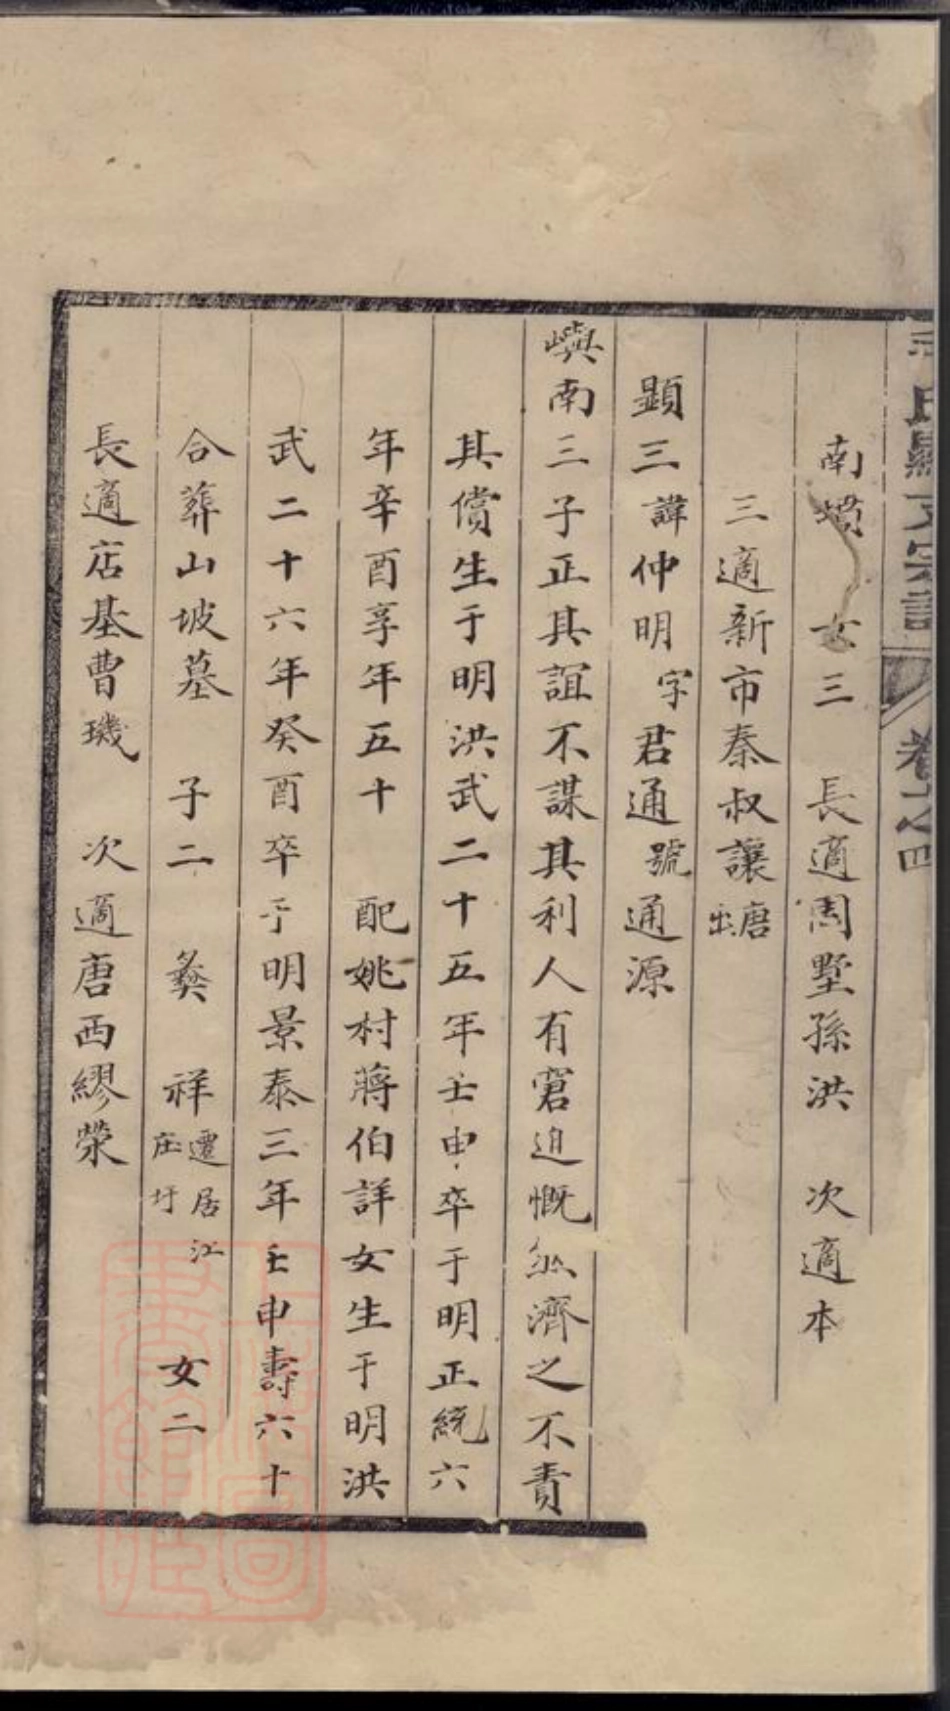 氏顯文宗譜 卷之四
南 女三 長適周墅孫洪 次適本
三適新市秦叔讓 塘
顯三 諱仲明 字君通 號通源
嶼南三子正其誼不謀其利人有窘迫慨然濟之不責
其償生于明洪武二十五年壬申卒于明正統六
年辛酉享年五十 配姚村蔣伯詳女生于明洪
武二十六年癸酉卒于明景泰三年壬申壽六十
合葬山坡墓 子二 彝 祥 遷居江庄圩 女二
長適店基曹璣 次適唐西繆榮